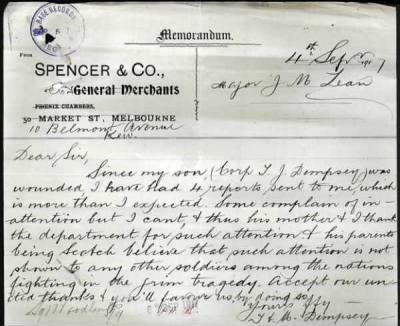 BASE RECORDS
Memorandum.
4th Sept 1917
From
SPENCER & CO.,
General Merchants
Major J M Lean
PHOENIX CHAMBERS,
MARKET ST, MELBOURNE
10 Belmont Avenue
Kew.
Dear Sir,
Since my son, (Corp T. J. Dempsey) was
wounded, I have had 4 reports sent to me, which
is more than I expected. Some complain of in-
attention but I cant, & thus his mother & I thank
the department for such attention & his parents
being Scotch believe that such attention is not
shown to any other soldiers among the nations
fighting in the grim tragedy. Accept our un-
ited thanks & you'll favour us by doing so
Yours ffly
T & M. Dempsey